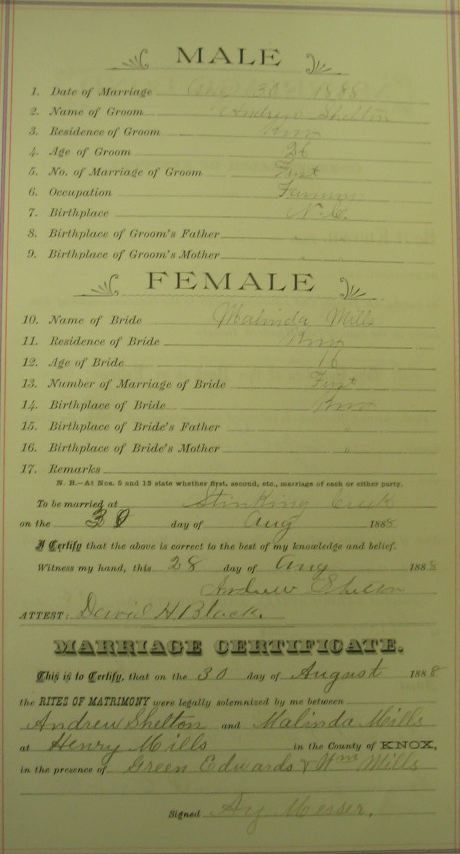 MALE
1. Date of Marriage Aug 30 1888
2. Name of Groom Andrew Shelton
3. Residence of Groom Knox
4. Age of Groom 26
5. No. of Marriage of Groom First
6. Occupation Farmer
7. Birthplace N.C.
8. Birthplace of Groom's Father "
9. Birthplace of Groom's Mother "
FEMALE
10. Name of Bride Malinda Mills
11. Residence of Bride Knox
12. Age of Bride 16
13. Number of Marriage of Bride First
14. Birthplace of Bride Knox
15. Birthplace of Bride's Father "
16. Birthplace of Bride's Mother "
17. Remarks
N. B.—At Nos. 5 and 13 state whether first, second, etc., marriage of each or either party.
To be married at Stinking Creek
on the 30 day of Aug 1888
I Certify that the above is correct to the best of my knowledge and belief.
Witness my hand, this 28 day of Aug 1888
Andrew Shelton
ATTEST: David H Black.
MARRIAGE CERTIFICATE.
This is to Certify, that on the 30 day of August 1888
the RITES OF MATRIMONY were legally solemnized by me between
Andrew Shelton and Malinda Mills
at Henry Mills in the County of KNOX,
in the presence of Green Edwards & Wm Mills
Signed Messer.